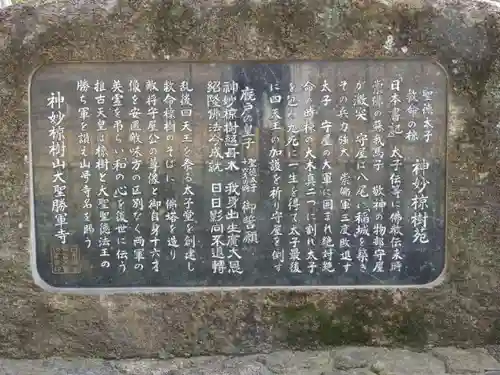 聖徳太子
救命の椋
神妙椋樹苑
「日本書記」 太子伝等に佛教伝来所
崇佛の蘇我馬子 敬神の物部守屋
が激突 守屋は八尾に稲城を築き
その兵力強大 崇佛軍三度敗退す
太子 守屋の大軍に囲まれ絶対絶
命の時椋の大木真二つに割れ太子
を包み九死に一生を得て太子最後
に四天王の加護を祈り守屋を倒す
廐戸の皇子 御誓願
神妙椋樹慈母木 我身出生廣大恩
紹隆佛法令成就 日日影向不退轉
乱後四天王を祭る太子堂を創建し
救命椋樹のそばに 佛塔を造り
敵将守屋公の尊像と御自身十六才
像を安置敵味方の区別なく両軍の
英霊を弔らい和の心を後世に伝う
推古天皇は椋樹と大聖聖徳法王の
勝ち軍を讃え山号寺名を賜う
神妙椋樹山大聖勝軍寺